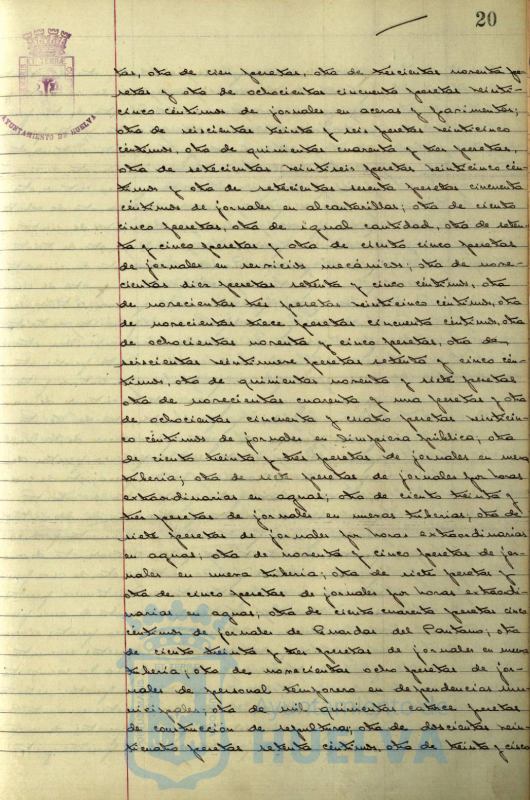 20
AYUNTAMIENTO DE HUELVA
tas, otra de cien pesetas, otra de trescientas noventa pe
setas y otra de ochocientas cincuenta pesetas veinti-
cinco céntimos de jornales en aceras y pavimentos;
otra de seiscientas treinta y seis pesetas veinticinco
céntimos, otra de quinientas cuarenta y tres pesetas,
otra de setecientas veintiseis pesetas veinticinco cén-
timos y otra de setecientas sesenta pesetas cincuenta
céntimos de jornales en alcantarillas; otra de ciento
cinco pesetas, otra de igual cantidad, otra de seten-
ta y cinco pesetas y otra de ciento cinco pesetas
de jornales en servicios mecánicos; otra de nove-
cientas diez pesetas setenta y cinco céntimos, otra
de novecientas tres pesetas veinticinco céntimos, otra
de novecientas trece pesetas cincuenta céntimos, otra
de ochocientas noventa y cinco pesetas, otra de
seiscientas veintinueve pesetas setenta y cinco cén-
timos, otra de quinientas noventa y siete pesetas
otra de novecientas cuarenta y una pesetas y otra
de ochocientas cincuenta y cuatro pesetas veinticin-
co céntimos de jornales en limpieza pública; otra
de ciento treinta y tres pesetas de jornales en nueva
tubería; otra de siete pesetas de jornales por horas
extraordinarias en aguas; otra de ciento treinta y
tres pesetas de jornales en nuevas tuberias; otra de
siete pesetas de jornales por horas extraordinarias
en aguas; otra de noventa y cinco pesetas de jor-
nales en nueva tubería; otra de siete pesetas y
otra de cinco pesetas de jornales por horas extraordi-
narias en aguas; otra de ciento cuarenta pesetas cinco
céntimos de jornales de Guardas del Pantano; otra
de ciento treinta y tres pesetas de jornales en nueva
tubería; otra de novecientas ocho pesetas de jor-
nales de personal temporero en dependencias mu
nicipales; otra de mil quinientas catorce pesetas
de construcción de sepultura; otra de doscientas vein-
ticuatro pesetas setenta céntimos, otra de treinta y cinco
HUELVA